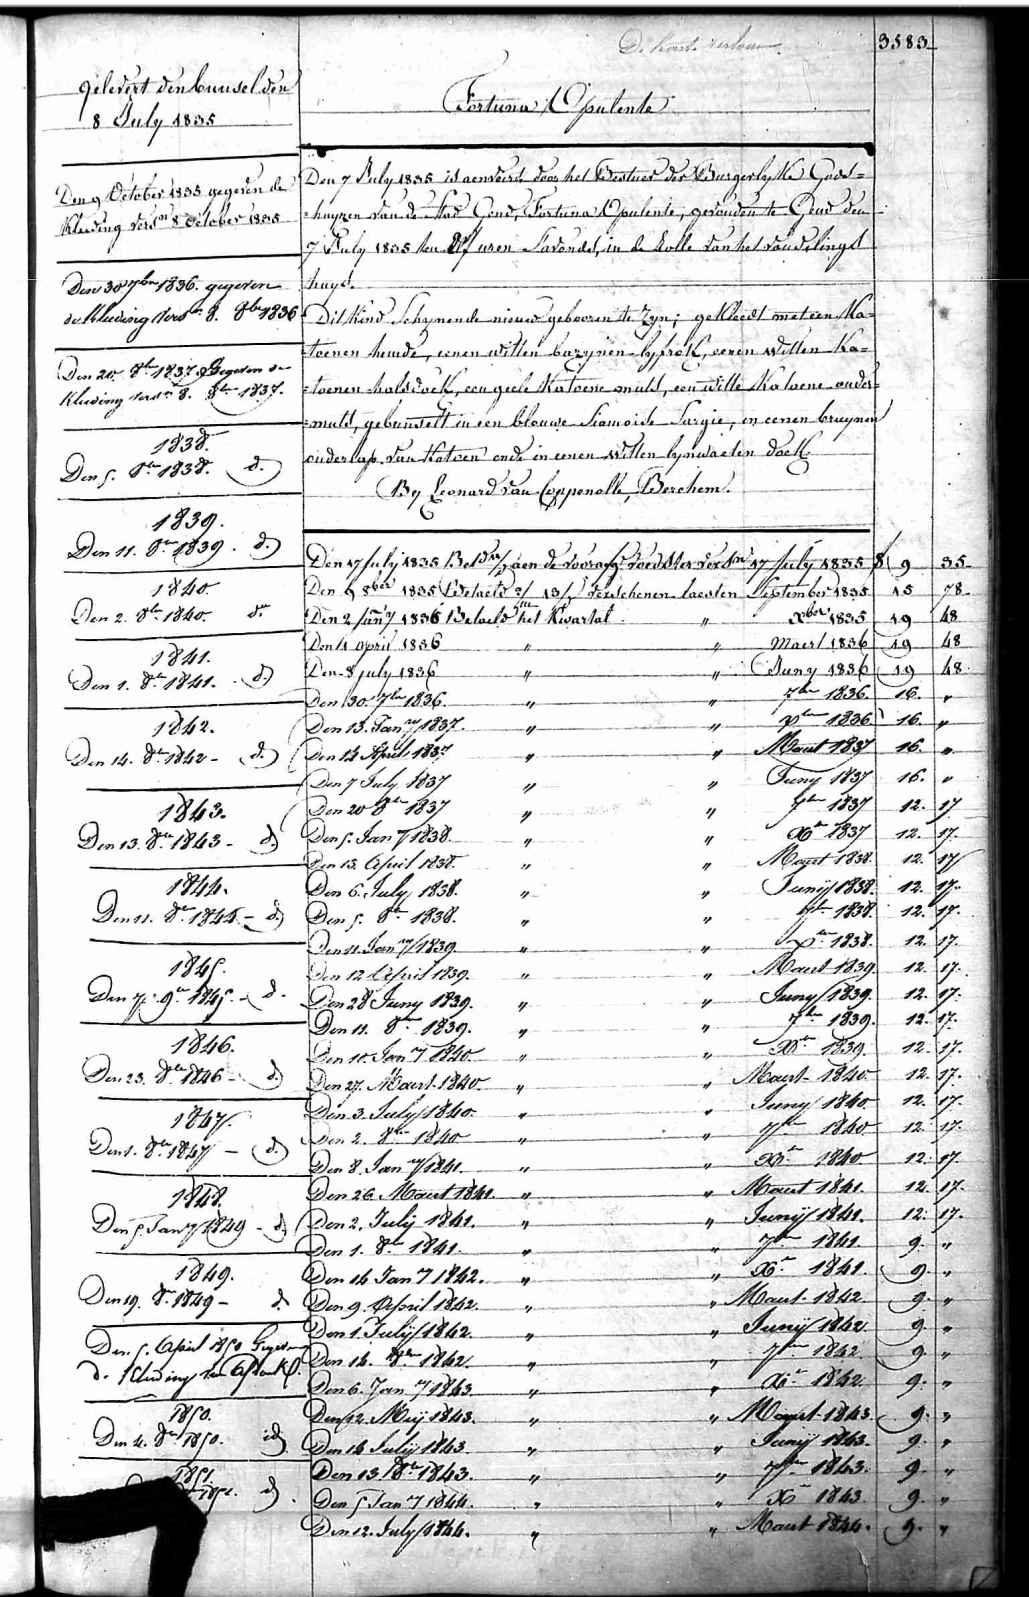 3583
gelevert den bunsel den
8 July 1835
Fortuna Opulente
Den 9 October 1835 gegeven de
Kleeding vers.en 8 October 1835
Den 30 7ber 1836. gegeven
de Kleeding vers.en 8. 8ber 1836
Den 20. 8er 1837. Gegeven de
Kleeding vers.en 8. 8er 1837.
1838.
Den 5. 8er 1838. d.
1839.
Den 11. 8er 1839. d.
1840.
Den 2. 8er 1840. do
1841.
Den 1. 8er 1841. d.
1842.
Den 14. 8er 1842 - d.
1843.
Den 13. 8er 1843 - d.
1844.
Den 11. 8er 1844. - d.
1845.
Den 7. 9er 1845. - d.
1846.
Den 23. 8er 1846 - d.
1847.
Den 1. 8er 1847 - d.
1848.
Den 5. Jany 1849 - d.
1849.
Den 19. 8er 1849 - d
Den 5. April 1850
d. Kleeding
1850.
Den 4. 8er 1850. id
1851.
id
Den 7 July 1835 is aenveird door het Bestuer der Burgerlyke Gods=
=huyzen van de Stad Gend, Fortuna Opulente, gevonden te Gend den
7 July 1835 ten elf uren S'avonds, in de Rolle van het vondelings
huys.
Dit Kind Schynende nieuw gebooren te Zyn; gekleedt met een Ka=
=toenen hemde, eenen witten bazynen lyfrok, eenen witten Ka=
=toenen halsdoek, een geele Katoene muts, een witte Katoene onder=
=muts, gebunselt in een blouwe Siamoise Sargie, en eenen bruynen
onderlap van Katoen ende in eenen witten lynwaeten doek.
By Leonard van Coppenolle, Berchem.
Den 17 July 1835 Bet. aen de voorg. voedster vers.en 17 July 1835 8 9 35
Den 9 8ber 1835 Betaeld 2/ 13/ verschenen laesten September 1835 15 78
Den 2 January 1836 Betaeld het Kwartal " Xber 1835 19 48
Den 11 april 1836 " " Maert 1836 19 48
Den 8 july 1836 " " Juny 1836 19 48
Den 30. 7er 1836. " " 7ber 1836. 16. "
Den 13. Jany 1837. " " Xber 1836 16. "
Den 14 April 1837 " " Maert 1837 16. "
Den 7 July 1837 " " Juny 1837 16. "
Den 20 8er 1837 " " 7er 1837 12. 17
Den 5. Jany 1838. " " Xer 1837 12. 17.
Den 13. April 1838. " " Maert 1838. 12. 17
Den 6. July 1838. " " Junij 1838. 12. 17.
Den 5. 8er 1838. " " 7er 1838. 12. 17.
Den 11. Jany 1839 " " Xer 1838. 12. 17.
Den 12 April 1839. " " Maert 1839 12. 17.
Den 28 Juny 1839. " " Juny 1839. 12. 17.
Den 11. 8er 1839. " " 7er 1839. 12. 17.
Den 10. Jany 1840 " " Xer 1839. 12. 17.
Den 27. Maert 1840 " " Maert 1840 12. 17.
Den 3. July 1840 " " Juny 1840. 12. 17.
Den 2. 8er 1840 " " 7er 1840 12. 17.
Den 8. Jany 1841. " " Xer 1840 12. 17.
Den 26. Maert 1841. " " Maert 1841. 12. 17.
Den 2. July 1841. " " Junij 1841. 12. 17.
Den 1. 8er 1841. " " 7er 1841. 9. "
Den 14 Jany 1842. " " Xer 1841. 9. "
Den 9. April 1842. " " Maert. 1842 9. "
Den 1. July 1842. " " Junij 1842 9. "
Den 14. 8er 1842. " " 7er 1842 9. "
Den 6. Jany 1843 " " Xer 1842 9. "
Den 12. Meij 1843. " " Maert 1843. 9. "
Den 14 July 1843 " " Junij 1843. 9. "
Den 13 8er 1843. " " 7er 1843. 9. "
Den 5 Jany 1844. " " Xer 1843 9. "
Den 12. July 1844. " " Maert 1844. 9. "